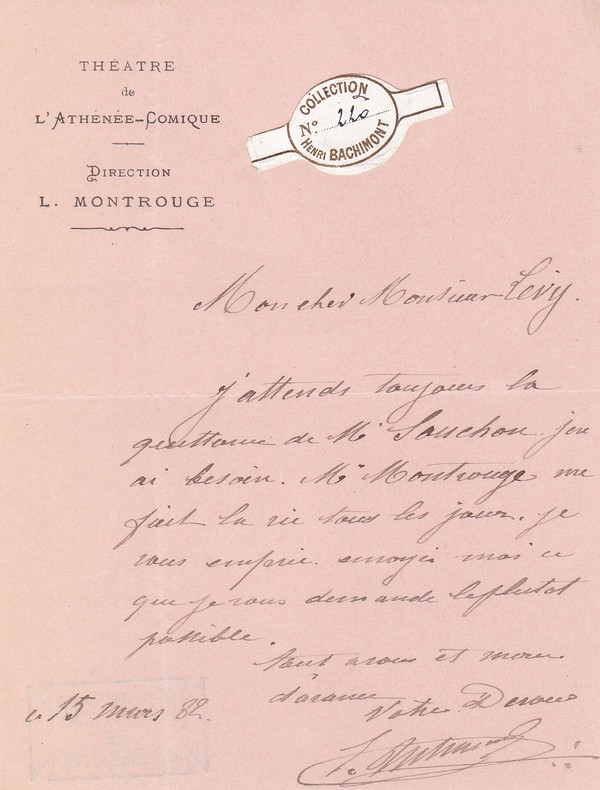 THÉATRE
de
L'ATHÉNÉE-COMIQUE
DIRECTION
L. MONTROUGE
COLLECTION
No. 220
HENRI BACHIMONT
Mon cher Monsieur Lévy.
J'attends toujours la
quittance de Mr Souchon. j'en
ai besoin. Mr Montrouge me
fait la vie tous les jours. Je
vous en prie. envoyés moi ce
que je vous demande le plutot
possible.
tout a vous et merci
d'avance
Votre Dévoué
ce 15 mars 82.